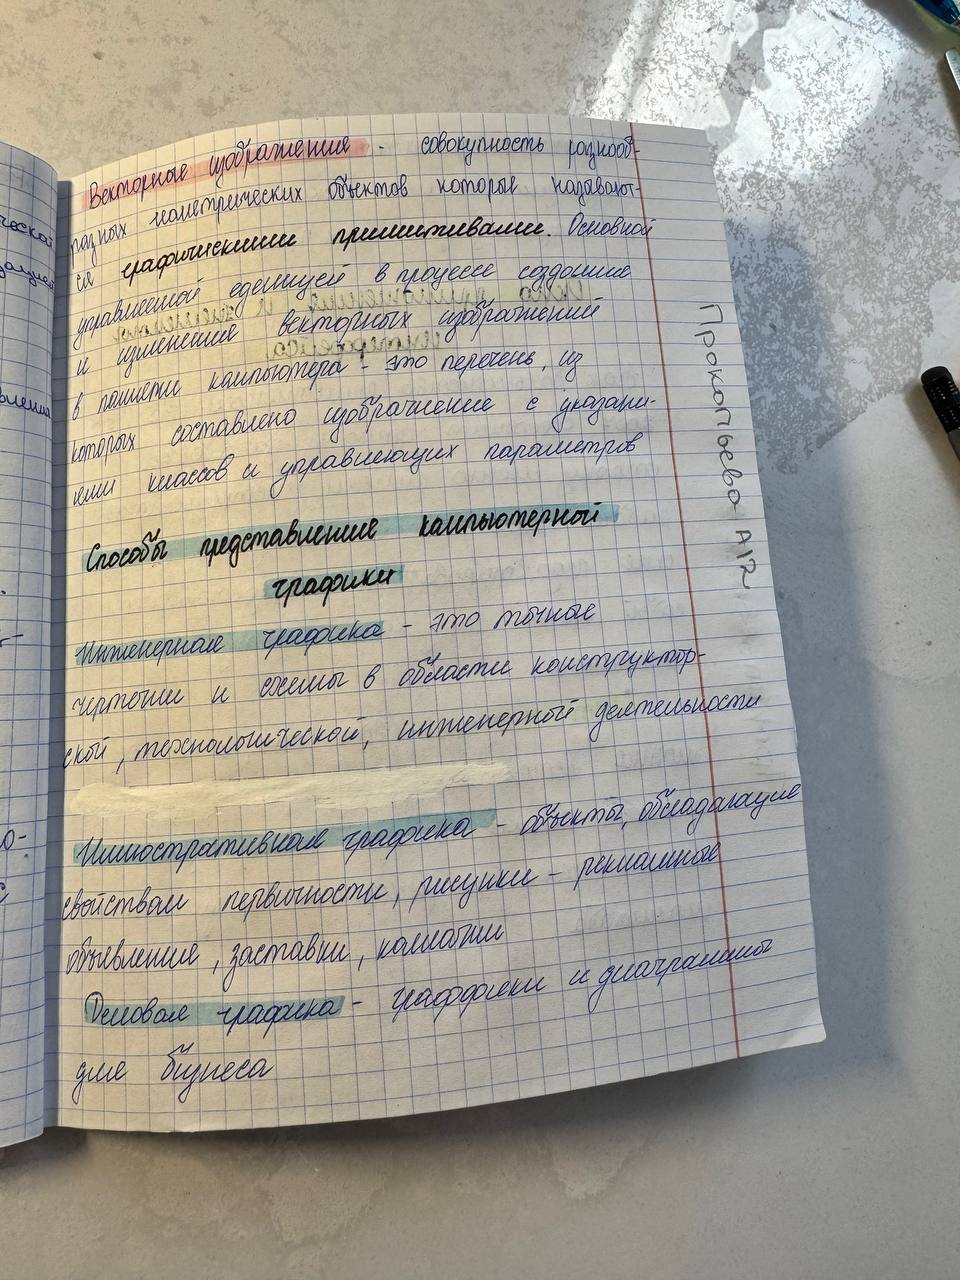 Векторные изображения - совокупность разнооб-
разных геометрических объектов которые называют-
ся графическими примитивами. Основной
управляемой еденицей в процессе создания
и изменения векторных изображений
в памяти компьютера - это перечень, из
которых составлено изображение с указани-
ями классов и управляющих параметров
Способы представления компьютерной
графики
Инженерная графика - это точные
чертежи и схемы в области конструктор-
ской, технологической, инженерной деятельности
Иллюстративная графика - объекты, обладающие
свойством первичности, рисунки - рекламные
объявления, заставки, коллажи
Деловая графика - граффики и диаграммы
для бизнеса
Прокопьева А12
ческой
вления